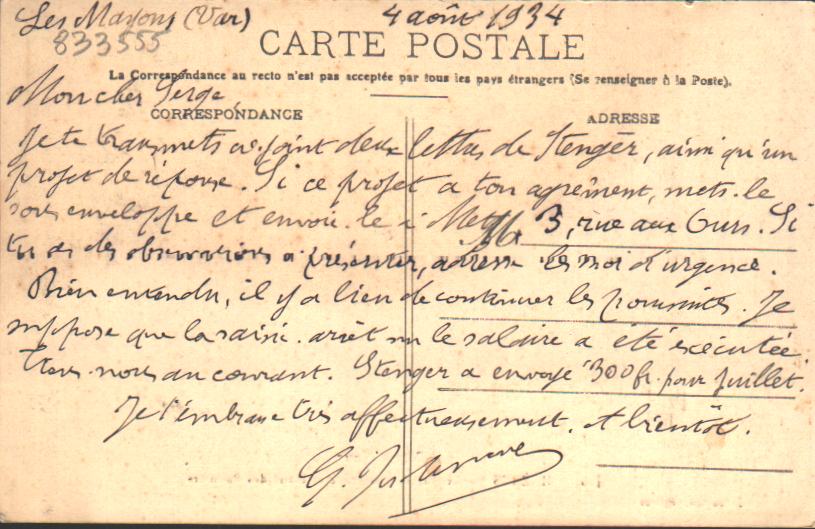 Les Mayons (Var) 4 août 1934
833555
CARTE POSTALE
La Correspondance au recto n'est pas acceptée par tous les pays étrangers (Se renseigner à la Poste).
Mon cher Serge
CORRESPONDANCE ADRESSE
Je te transmets ci-joint deux lettres de Stenger, ainsi qu'un
projet de réponse. Si ce projet a ton agrément, mets-le
sous enveloppe et envoie-le à Metz 3, rue aux Ours. Si
tu as des observations à présenter, adresse-les moi d'urgence.
Bien entendu, il y a lieu de continuer les poursuites. Je
suppose que la saisie-arrêt sur le salaire a été exécutée.
Tiens-nous au courant. Stenger a envoyé 300 fr. pour Juillet.
Je t'embrasse très affectueusement. A bientôt.
G.